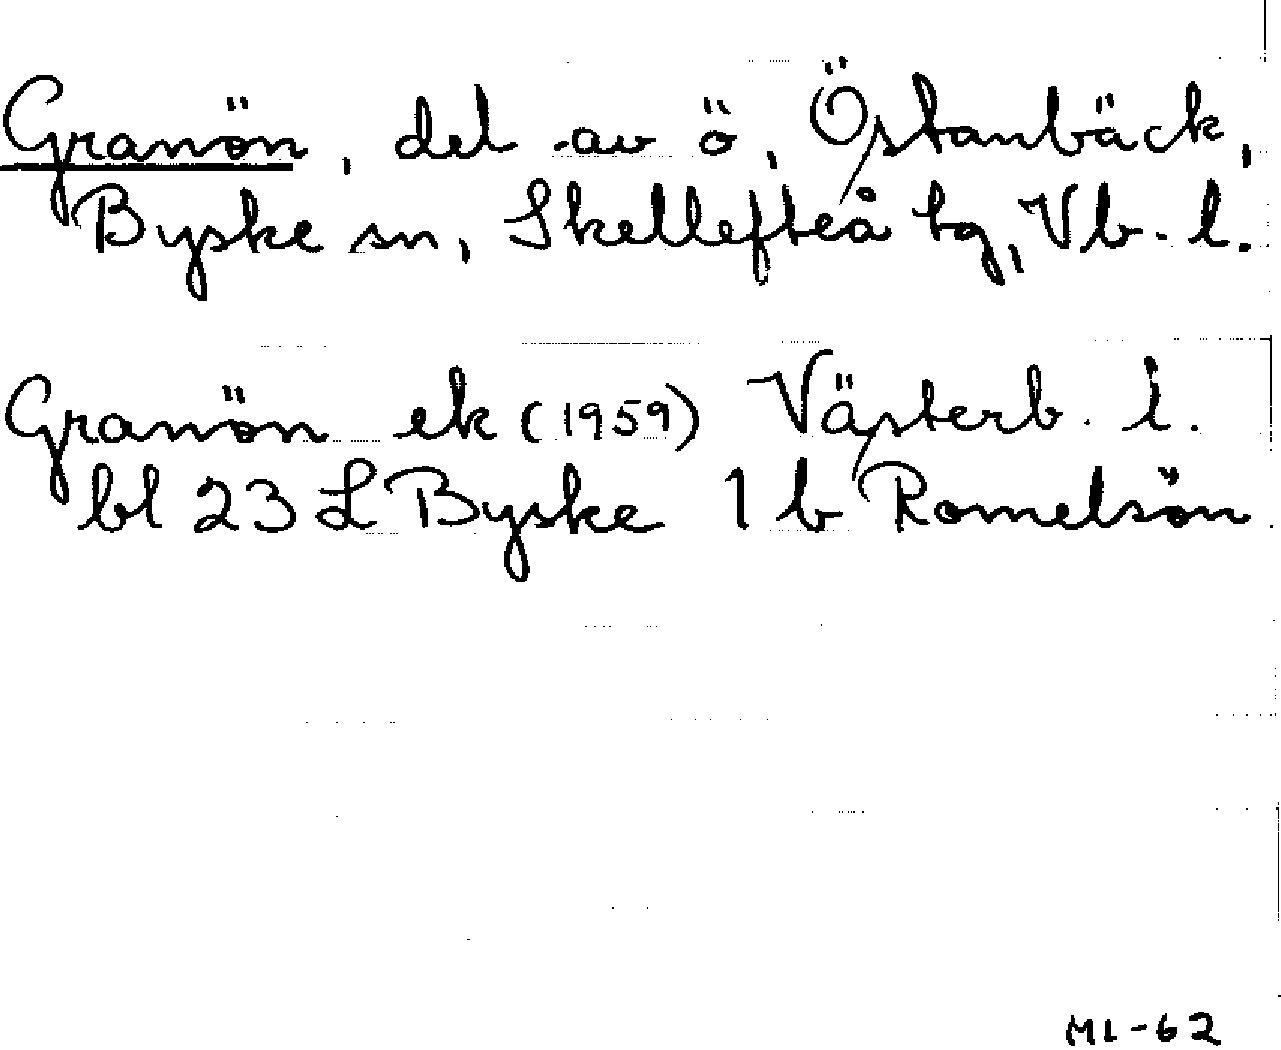 Granön, del av ö, Östanbäck,
Byske sn, Skellefteå tg, Vb. l.
Granön ek (1959) Västerb. l.
bl 23 L Byske 1 b Romelsön
ML-62